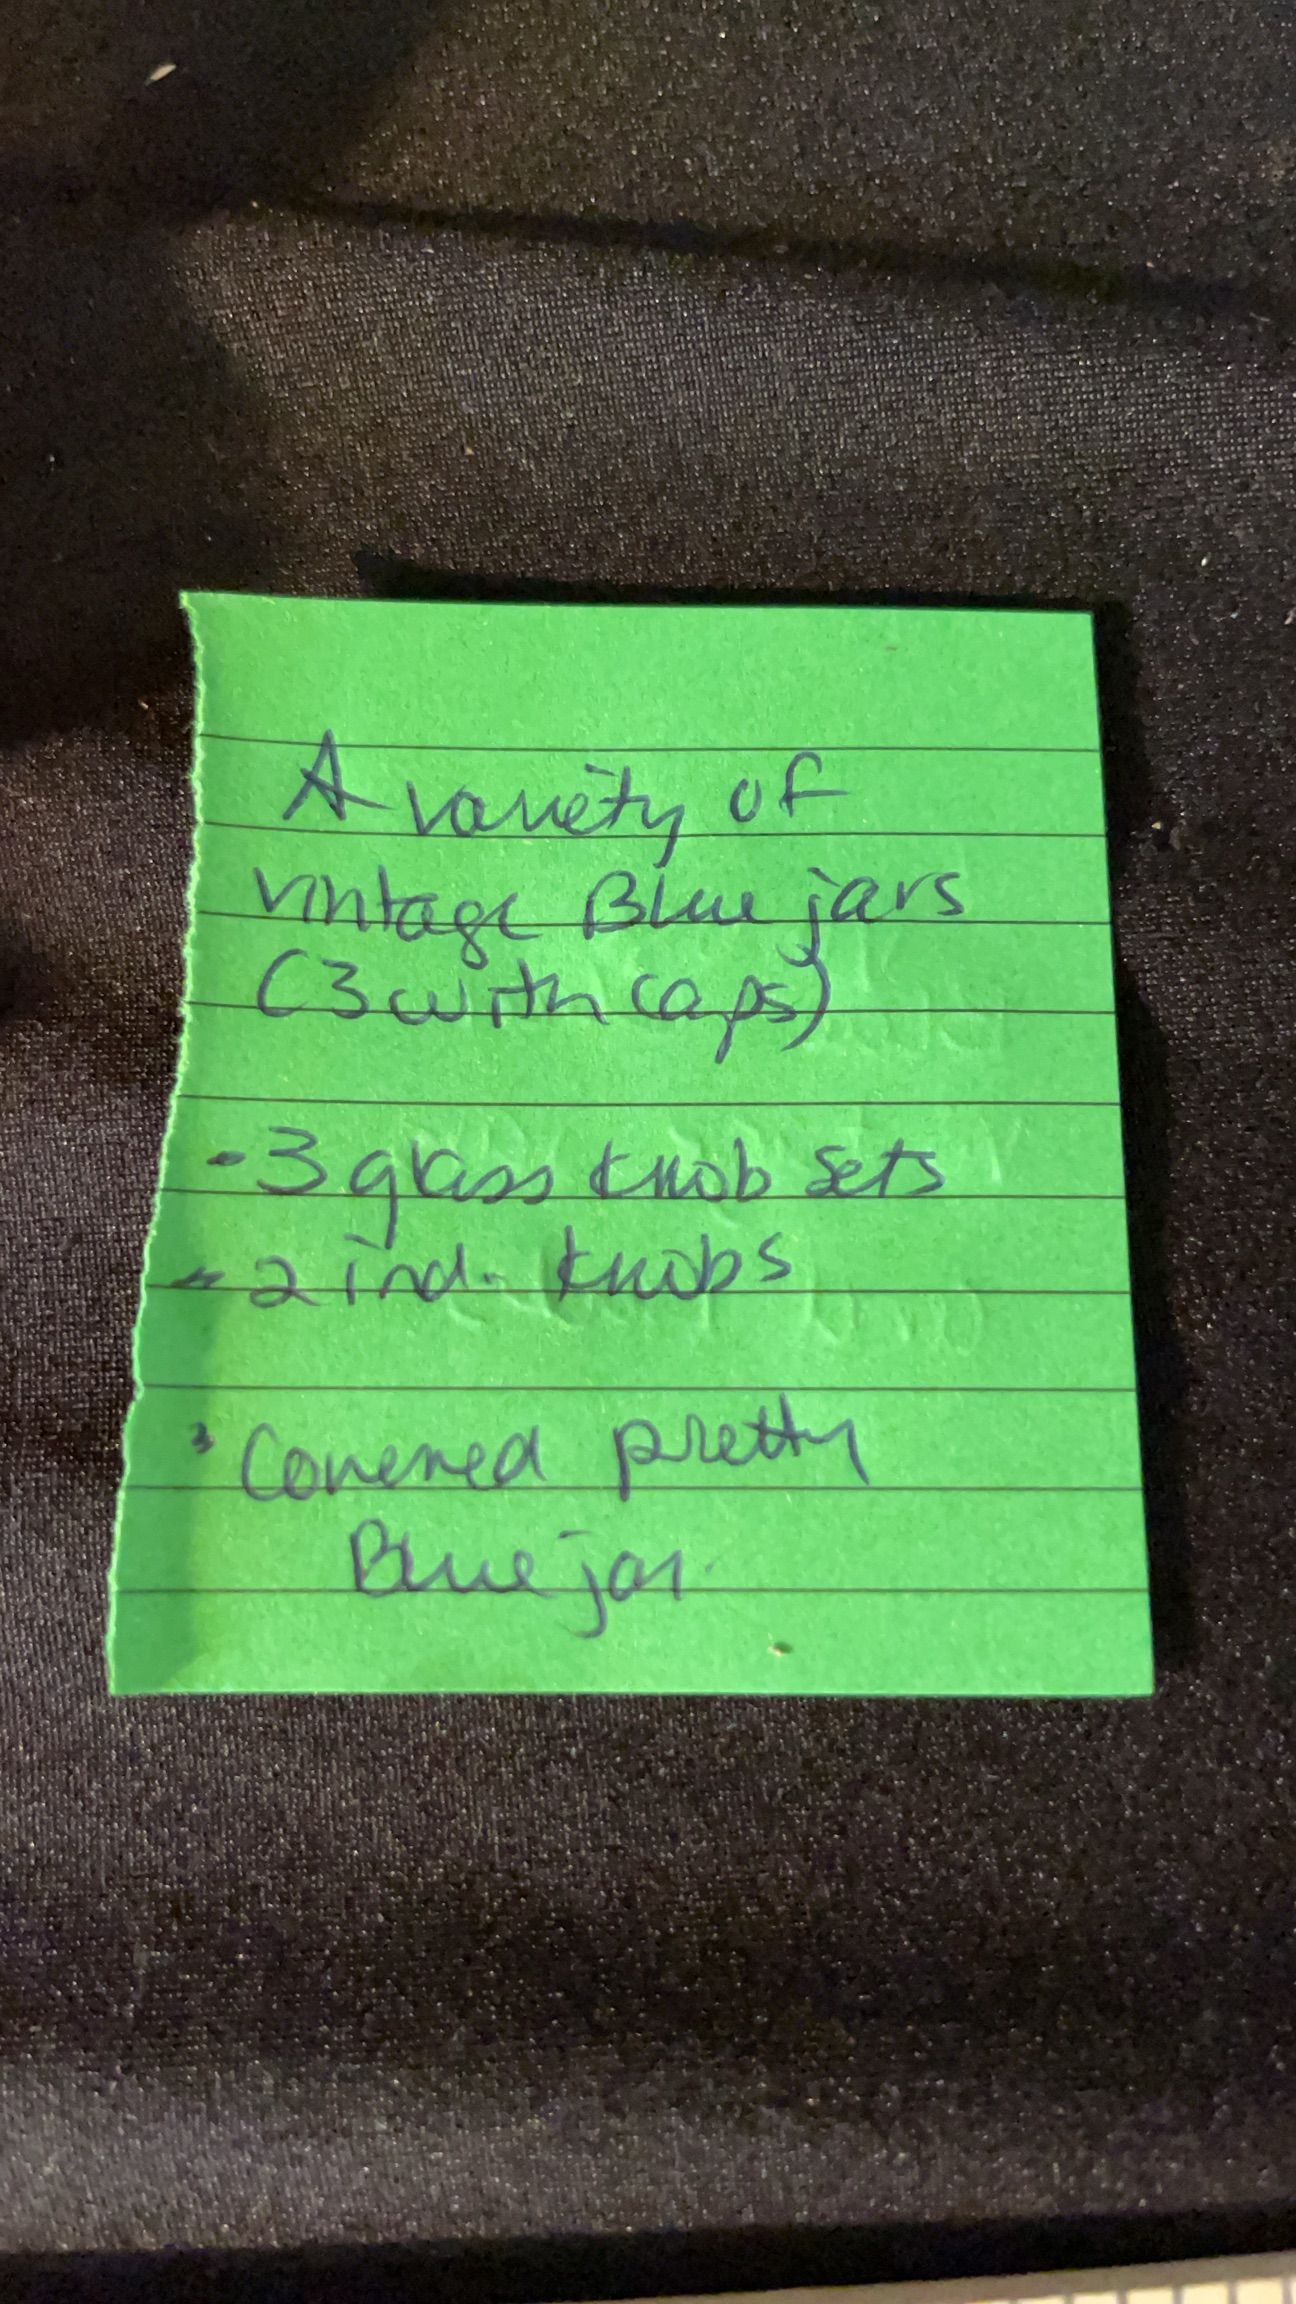 A variety of
vintage Blue jars
(3 with caps)
- 3 glass knob sets
- 2 ind. knobs
Covered pretty
Blue jar.